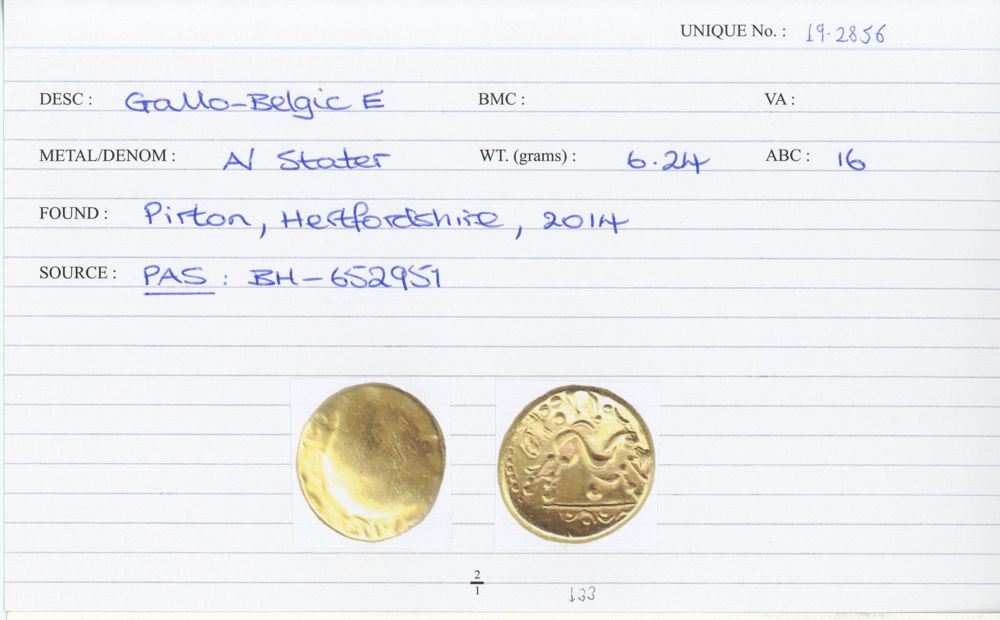 UNIQUE No. : 19.2856
DESC : Gallo-Belgic E BMC : VA :
METAL/DENOM : A/ Stater WT. (grams) : 6.24 ABC : 16
FOUND : Pirton, Hertfordshire, 2014
SOURCE : PAS : BH-652951
2/1
133